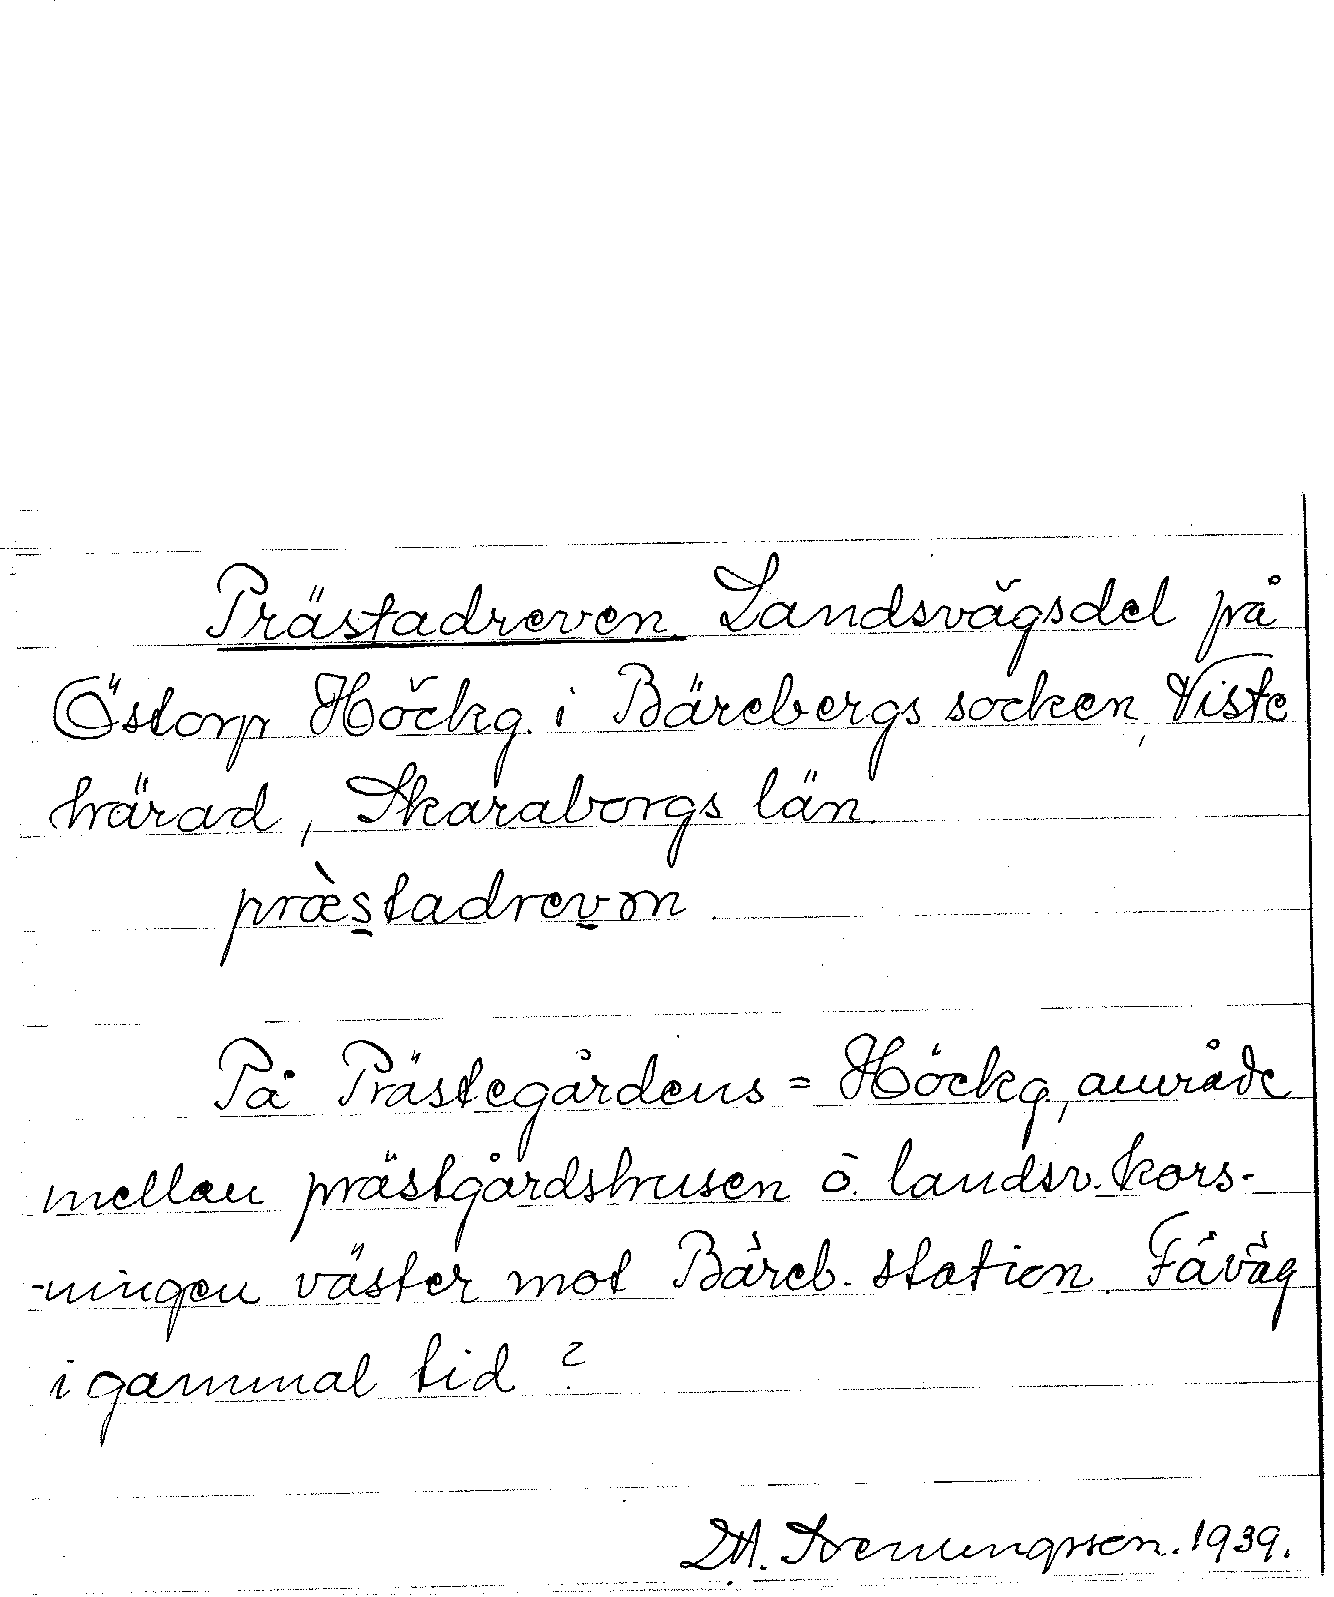 Prästadreven Landsvägsdel på
Östorp Höckg. i Bärebergs socken, Viste
härad, Skaraborgs län.
præ̀stadrevən
På Prästegårdens = Höckg, område
mellan prästgårdshusen o. landsv. kors-
-ningen väster mot Bäreb. station. Fäväg
i gammal tid?
1939.